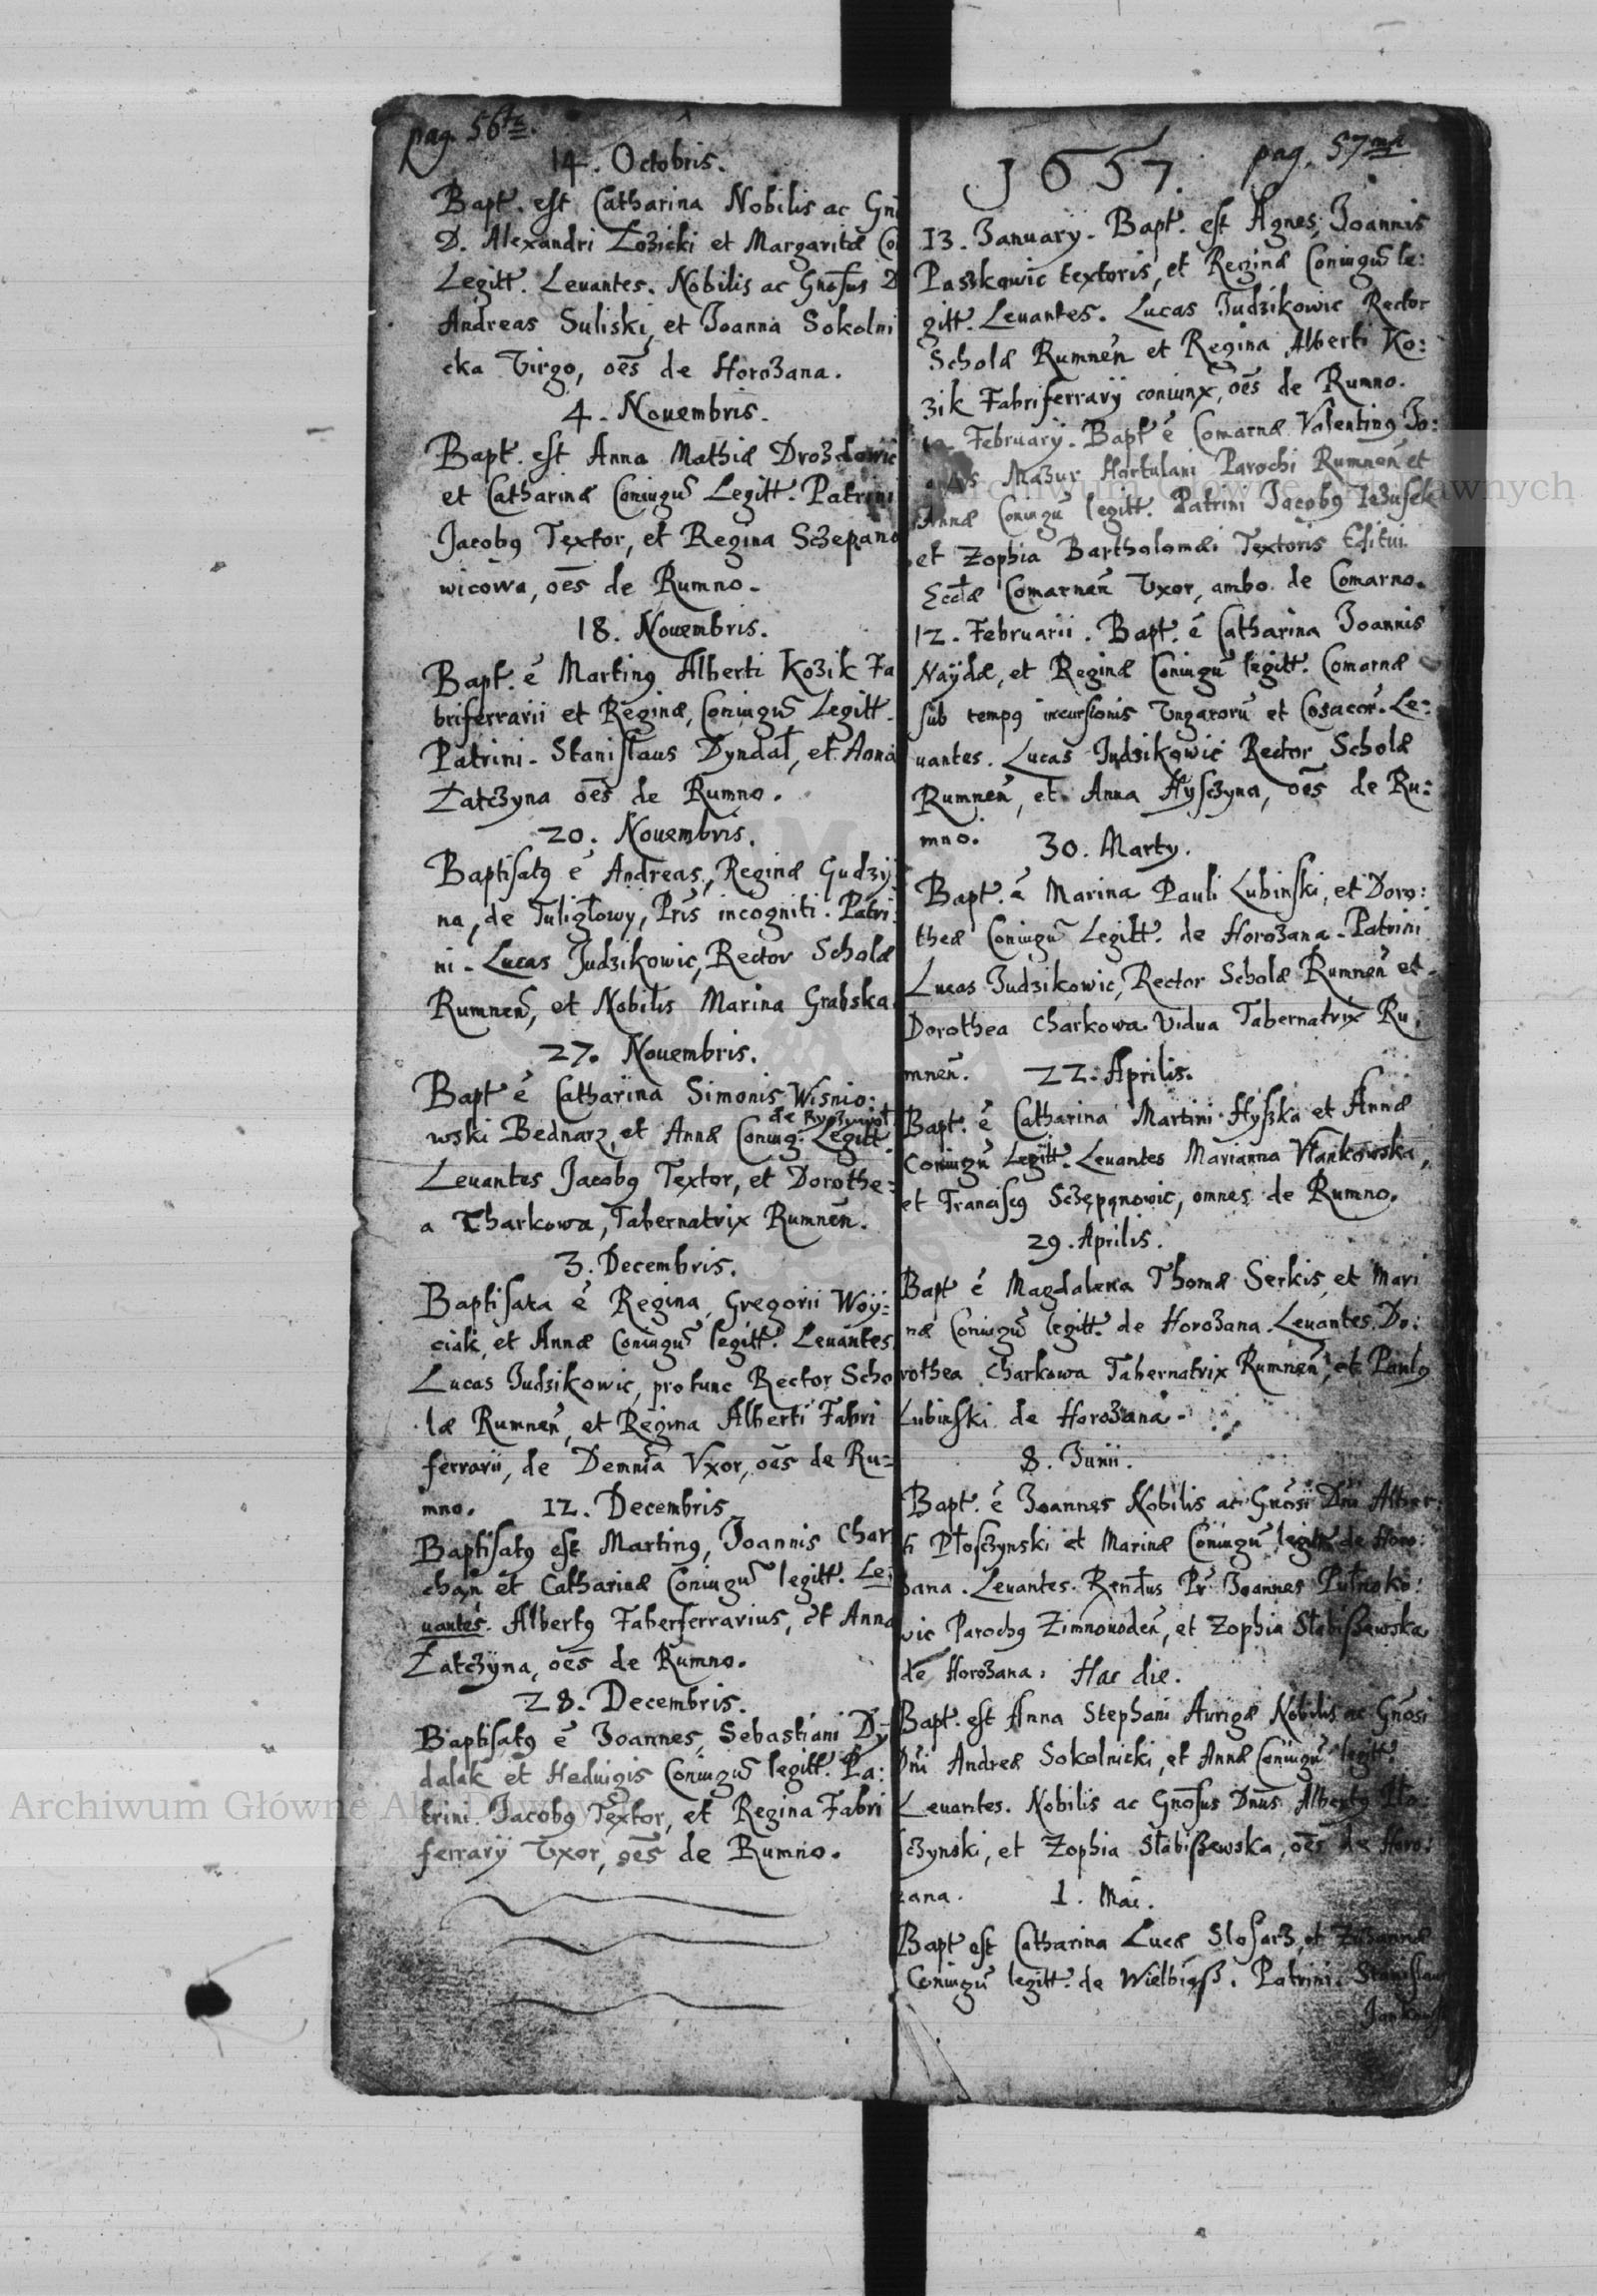 pag. 56ta.
14. Octobris.
Bapt. est Catharina Nobilis ac Gn
D. Alexandri Łozicki et Margaritæ Co
Legitt. Leuantes. Nobilis ac Gnosus D
Andreas Suliski, et Joanna Sokolni
cka Virgo, oēs de Horozana.
4. Nouembris.
Bapt. est Anna Mathiæ Drozdowic
et Catharinæ Coniugū Legitt. Patrini
Jacobꝰ Textor, et Regina Sczepano
wicowa, oēs de Rumno.
18. Nouembris.
Bapt. ē Martinꝰ Alberti Kozik Fa
briferrarii et Reginæ, Coniugū Legitt.
Patrini. Stanislaus Dyndał, et Anna
Zatczyna oēs de Rumno.
20. Nouembris.
Baptisatꝰ ē Andreas, Reginæ Gudzy
na, de Tuligłowy, Pris incogniti. Patri:
ni. Lucas Judzikowic, Rector Scholæ
Rumneñ, et Nobilis Marina Grabska.
27. Nouembris.
Bapt ē Catharina Simonis Wisnio:
de
wski Bednarz, et Annæ Coniug. Legitt.
Leuantes Jacobꝰ Textor, et Dorothe:
a Charkowa, Tabernatrix Rumneñ.
3. Decembris.
Baptisata ē Regina, Gregorii Woÿ:
ciak, et Annæ Coniugū legitt. Leuantes
Lucas Judzikowic, pro tunc Rector Scho
læ Rumneñ, et Regina Alberti Fabri
ferrarii, de Demnia Vxor, oēs de Ru=
mno. 12. Decembris
Baptisatꝰ est Martinꝰ, Joannis Char
chan et Catharinæ Coniugū legitt. Le
uantes. Albertꝰ Faberferrarius, et Anna
Zatczyna, oēs de Rumno.
28. Decembris.
Baptisatꝰ ē Joannes, Sebastiani Dy
dalak et Heduigis Coniugū legitt. Pa:
trini Jacobꝰ Textor, et Regina Fabri
ferrarÿ Vxor, oēs de Rumno.
pag. 57ma
1657.
13. Januarÿ. Bapt. est Agnes, Joannis
Paszkowic textoris, et Reginæ Coniugū le:
gitt. Leuantes. Lucas Judzikowic Rector
Scholæ Rumneñ et Regina Alberti Ko:
zik Fabriferrarÿ coniunx, oēs de Rumno.
Februarÿ. Bapt ē Comarnæ Valentinꝰ Jo:
Mazur Hortulani Parochi Rumneñ et
Annæ Coniugū legitt. Patrini Jacobꝰ
et Zophia Bartholomæi Textoris Editui
Eccłæ Comarneñ Vxor, ambo de Comarno.
12. Februarii. Bapt. ē Catharina Joannis
Naÿdæ, et Reginæ Coniugū legitt. Comarnæ
sub tempꝰ incursionis Vngarorū et Cosacor. Le:
uantes. Lucas Judzikowic Rector Scholæ
Rumneñ, et Anna Hysczyna, oēs de Ru:
mno. 30. Marty.
Bapt. ē Marina Pauli Lubinski, et Doro:
theæ Coniugū Legitt. de Horozana. Patrini
Lucas Judzikowic, Rector Scholæ Rumneñ et
Dorothea Charkowa Vidua Tabernatrix Ru
mneñ. 22. Aprilis.
Bapt. ē Catharina Martini Hyszka et Annæ
Coniugū Legitt. Leuantes Marianna Vłankowska,
et Franciscꝰ Sczepanowic, omnes de Rumno.
29. Aprilis.
Bapt ē Magdalena Thomæ Serkis, et Mari
næ Coniugū legitt. de Horozana. Leuantes. Do:
rothea Charkowa Tabernatrix Rumneñ, et Paulꝰ
Lubinski de Horozana.
8. Junii.
Bapt. ē Joannes Nobilis ac Gnosi Dni Alber:
ti Płosczynski et Marinæ Coniugū legitt. de Horo:
zana. Leuantes. Rendus Pr Joannes
wic Parochꝰ Zimnouodeñ, et Zophia Słabiszewska
de Horozana. Hac die.
Bapt. est Anna Stephani Aurigæ Nobilis ac Gnosi
Dni Andreæ Sokolnicki, et Annæ Coniugū legitt.
Leuantes. Nobilis ac Gnosus Dnus Albertꝰ Pło:
sczynski, et Zophia Słabiszewska, oēs de Horo:
zana. 1. Mai.
Bapt est Catharina Lucæ Slosarz, et Zuzannæ
Coniugū legitt. de Wielbiąsz. Patrini. Stanislaus
Archiwum Główne Akt Dawnych
Archiwum Główne Akt Dawnych